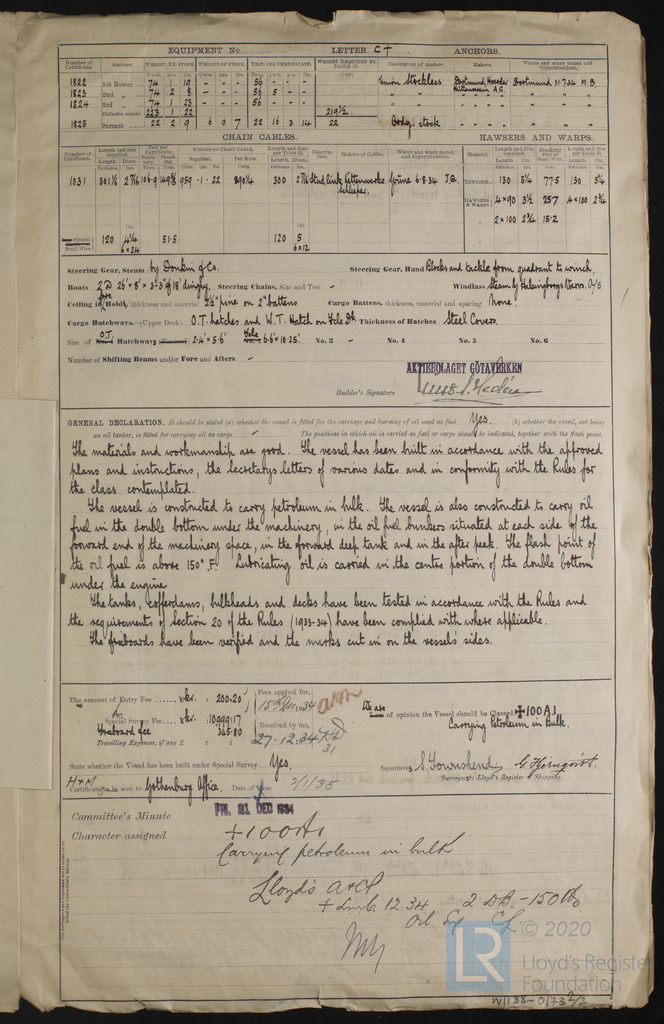 EQUIPMENT No LETTER C† ANCHORS.
Number of Certificate. Anchors. WEIGHT, EX. STOCK. WEIGHT OF STOCK. TEST, PER CERTIFICATE. WEIGHT REQUIRED BY TABLE 31. Description of Anchor. Makers. Where and when tested and Superintendent.
1822 1st Bower 74 1 19 - - - 56 Union Stockless Dortmund Hoerder Dortmund 31.7.34 M.B.
1823 2nd „ 74 2 8 - - - 56 5 - „ Hüttenverein A.G. „
1824 3rd „ 74 1 23 - - - 56 „ „ „
Collective weight 223 1 22 219½
1825 Stream 22 2 9 6 0 7 22 16 3 14 22 Ordy. stock
CHAIN CABLES. HAWSERS AND WARPS.
1031 301⅞ 2 7/16 959 - 1 - 22 890¼ 300 2 7/16 Stud link 6.8.34 TOWLINE 130 5¼ 77.5 130 5¼
HAWSERS & WARPS 4 x 90 3½ 25.7 4 x 100 2¾
2 x 100 2¾ 15.2
Steel Wire 120 4¼ 51.5 120 5
6 x 24 6 x 12
Steering Gear, Steam by Donkin & Co. Steering Gear, Hand Blocks and tackle from quadrant to winch.
Boats 2 @ 26' x 8' x 3'-3" & 18' dinghy. Steering Chains, Size and Test - Windlass Steam by Helsingborgs Varvs. A/B
Ceiling in fore Hold, thickness and material 2½" pine on 2" battens Cargo Battens, thickness, material and spacing None.
Cargo Hatchways.—(Upper Deck) O.T. hatches and W.T. Hatch on Fcle Dk Thickness of Hatches Steel Covers.
Size of O.T. Hatchways 2'-4" x 5'6" Fcle 6'-6" x 10.25' No. 3 - No. 4 No. 5 No. 6
Number of Shifting Beams and/or Fore and Afters -
AKTIEBOLAGET GÖTAVERKEN
Builder's Signature
GENERAL DECLARATION. It should be stated (a) whether the vessel is fitted for the carriage and burning of oil used as fuel Yes. (b) whether the vessel, not being
an oil tanker, is fitted for carrying oil as cargo - The positions in which oil is carried as fuel or cargo should be indicated, together with the flash point.
The materials and workmanship are good. The vessel has been built in accordance with the approved
plans and instructions, the Secretarys letters of various dates and in conformity with the Rules for
the class contemplated.
The vessel is constructed to carry petroleum in bulk. The vessel is also constructed to carry oil
fuel in the double bottom under the machinery, in the oil fuel bunkers situated at each side of the
forward end of the machinery space, in the forward deep tank and in the after peak. The flash point of
the oil fuel is above 150° F. Lubricating oil is carried in the centre portion of the double bottom
under the engine
The tanks, cofferdams, bulkheads and decks have been tested in accordance with the Rules and
the requirements of Section 20 of the Rules (1933-34) have been complied with where applicable.
The freeboards have been verified and the marks cut in on the vessels' sides.
The amount of Entry Fee ...... Kr. : 200.20 Fees applied for,
15th Dec. 34
Special Survey Fee ... Kr. : 10999.17
Freeboard fee 365.80 Received by me,
Travelling Expenses, if any £ : 27.12.34
We are of opinion the Vessel should be Classed ✠100A1
Carrying Petroleum in Bulk.
State whether the Vessel has been built under Special Survey Yes.
Signatures, S Townshend G. Hjernqvist.
Surveyors to Lloyd's Register of Shipping.
Certificate to be sent to Gothenburg Office. Date of issue 2/1/35
Committee's Minute FRI. 21 DEC 1934
Character assigned +100A1
Carrying petroleum in bulk
Lloyd's A&CP
+ LMC 12.34 2 DB - 150 lb
Oil Eng CL
LR © 2020
Lloyd's Register
Foundation
W1188-0173 2/2